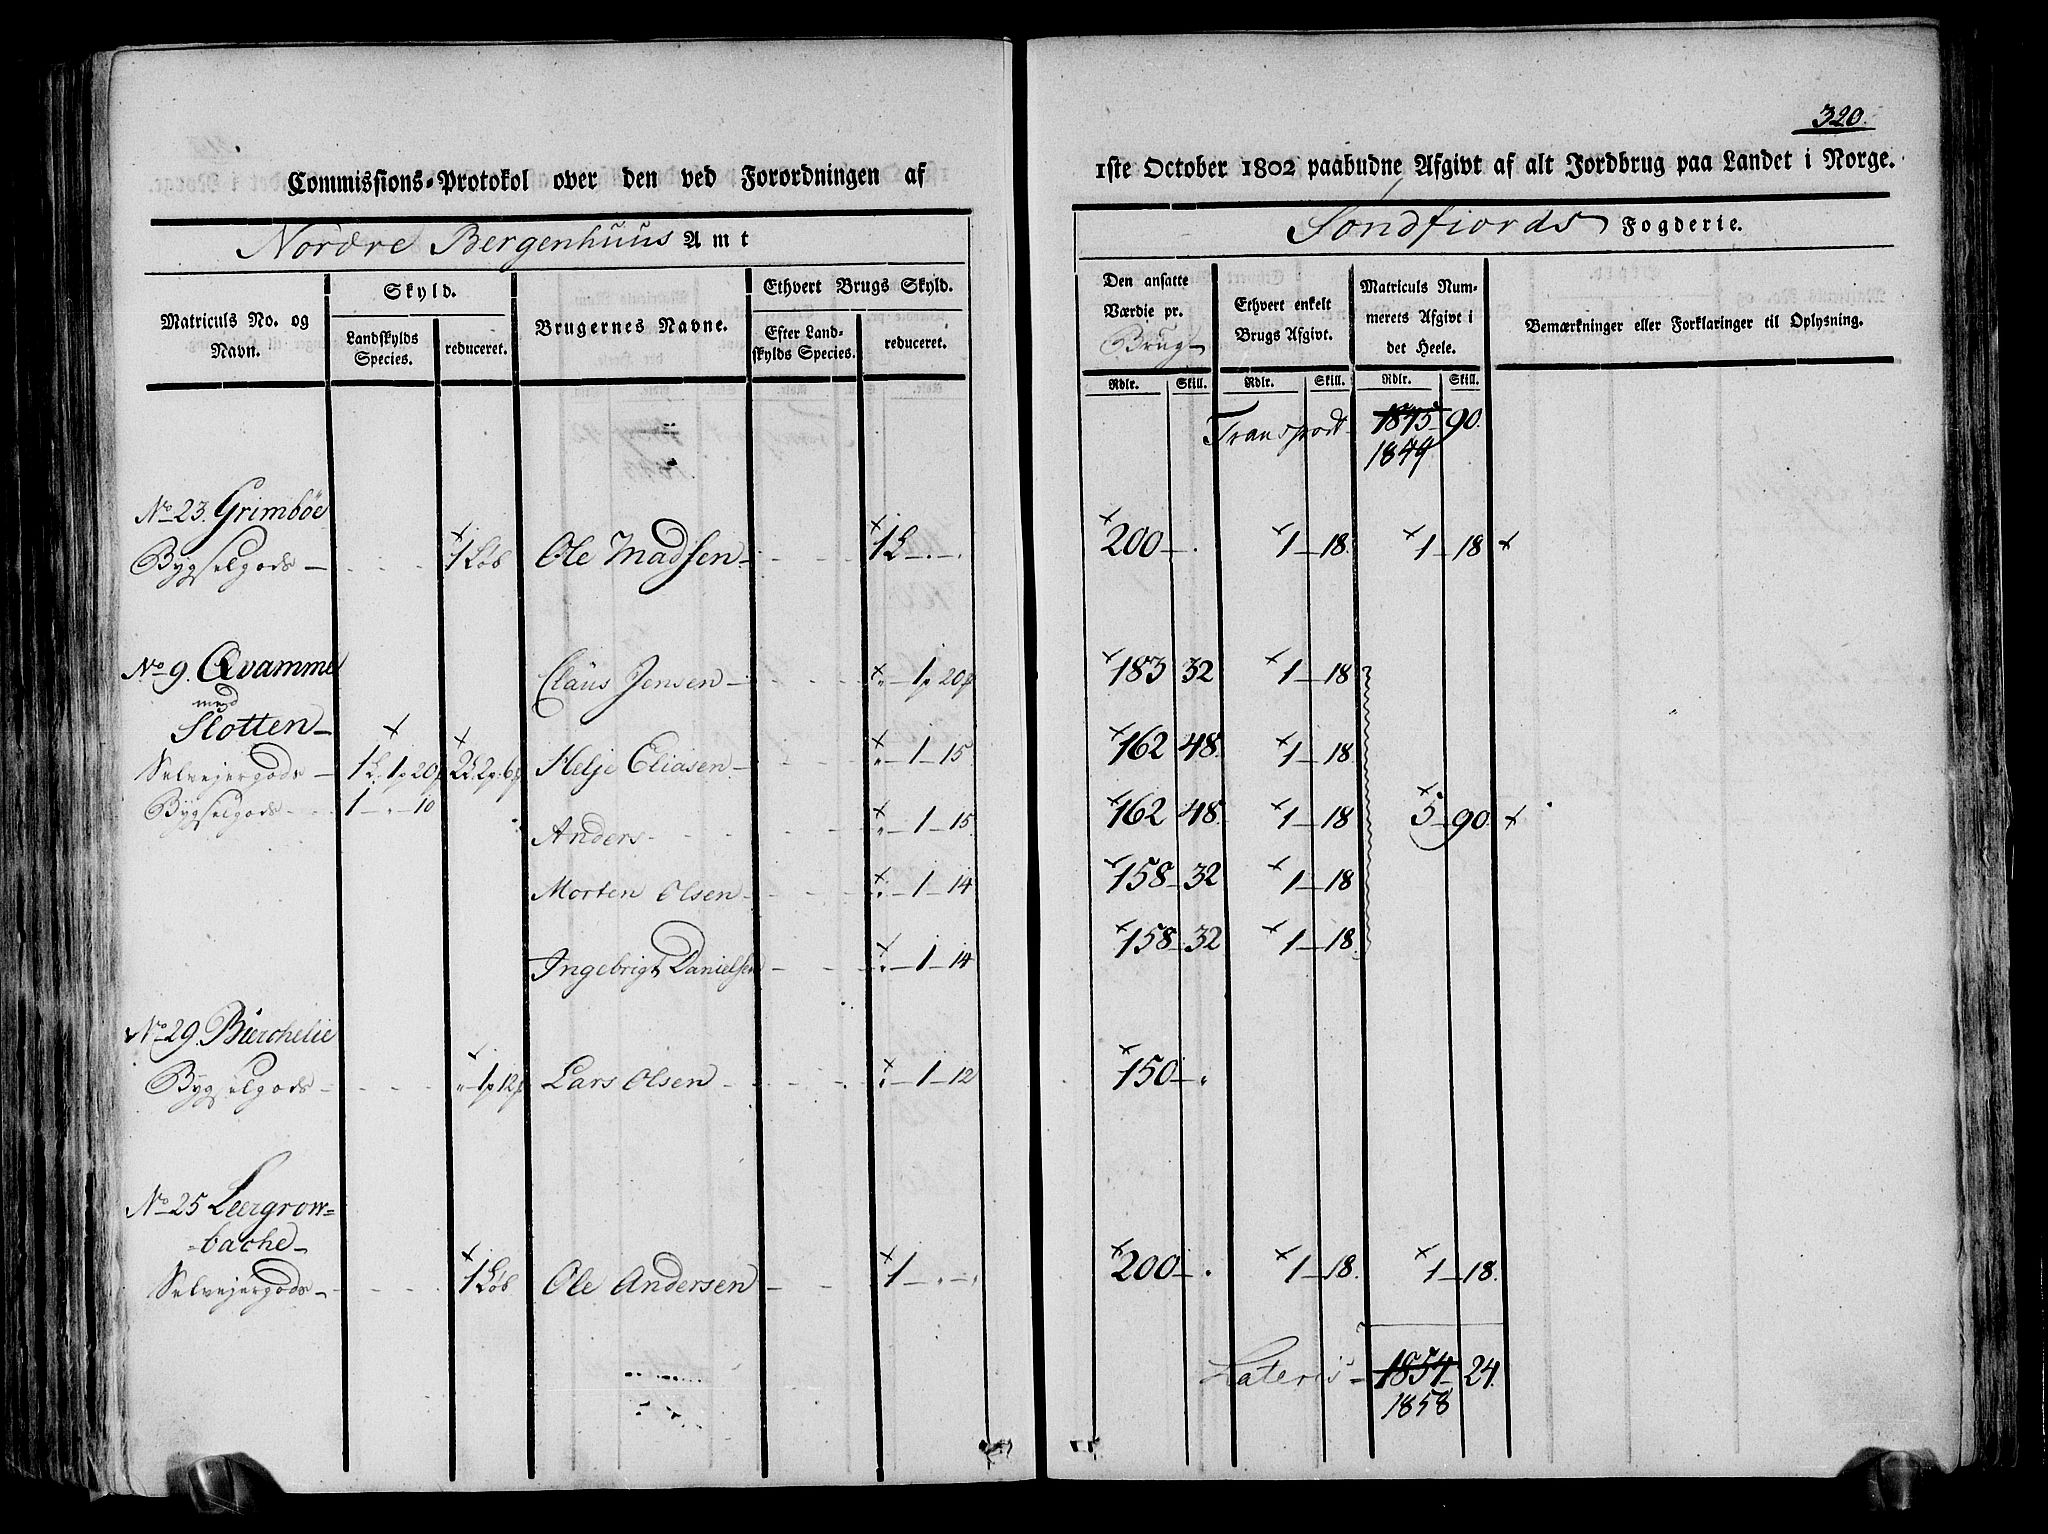 320.
Commissions-Protokol over den ved Forordningen af
1ste October 1802 paabudne Afgivt af alt Jordbrug paa Landet i Norge.
Nordre Bergenhuus Amt
Söndfiords Fogderie.
Matriculs No. og Navn.
Skyld.
Landskylds Species.
reduceret.
Brugernes Navne.
Ethvert Brugs Skyld.
Efter Landskylds Species.
reduceret.
Den ansatte Værdie pr. Brug
Ethvert enkelt Brugs Afgivt.
Matriculs Nummerets Afgivt i det Heele.
Bemærkninger eller Forklaringer til Oplysning.
Rdlr. Skill. Rdlr. Skill. Rdlr. Skill.
Transport 1845 90.
1849
No 23. Grimböe
Bygselgods — 1 Löb Ole Madsen 1 L - . - . 200 - . 1 - 18. 1 - 18
No 9. Qvamme Claus Jensen - 1 p 20 183 32 1 - 18
med
Slotten —
Selvejergods — 1 L. 1 p 20 2 L. 2 p. 6 Helje Eliasen - 1 - 15 162 48. 1 - 18
Bygselgods 1 - . - 10
Anders - 1 - 15. 162 48. 1 - 18 5 - 90.
Morten Olsen - 1 - 14 158 - 32 1 - 18
Ingebrigt Danielsen - 1 - 14 158 - 32 1 - 18.
No 29. Bierchelie
Bygselgods - 1 p 12 Lars Olsen - 1 - 12 150 - .
No 25 Leergrow=
bache
Selvejergods - 1 Löb Ole Andersen - 1 - . - . 200 - . 1 - 18. 1 - 18.
Lateris - 1854 24.
1858